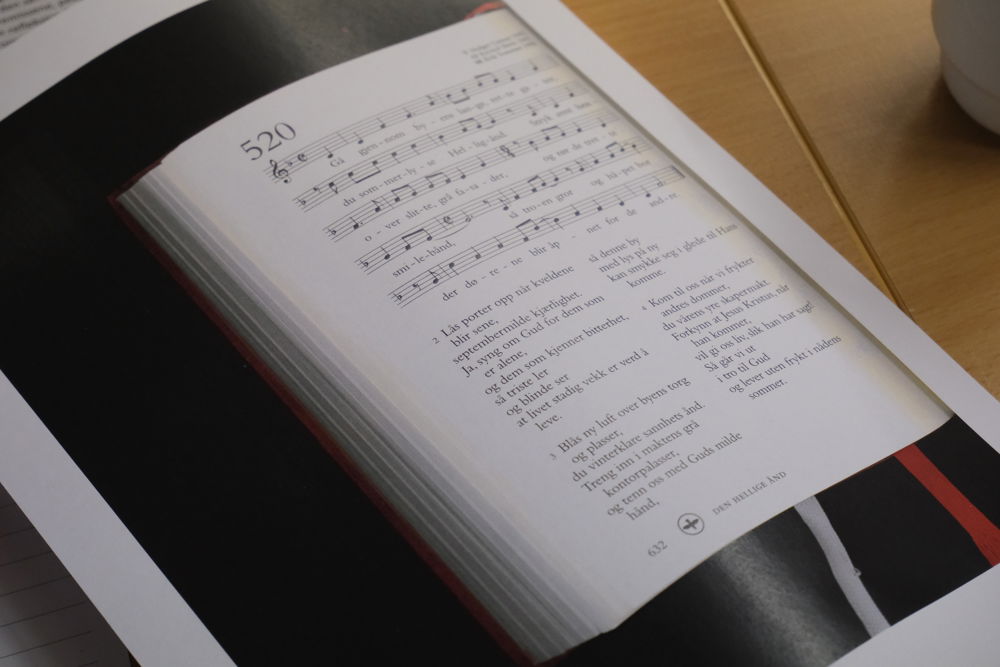 520
Gå igen - nom by - ens lan - ge, tet - te ga - ter,
du som - mer - ly - se Hel - lig - ånd. Stryk ømt hen
o - ver slit - te, grå fa - sa - der, og rør de tres - te
smi - le - bånd, så tro - en gror og hå - pet bor
der dø - re - ne blir åp - net for de and - re.
2 Lås porter opp når kveldene
blir sene,
septembermilde kjærlighet.
Ja, syng om Gud for dem som
er alene,
og dem som kjenner bitterhet,
så triste ler
og blinde ser
at livet stadig vekk er verd å
leve.
3 Blås ny luft over byens torg
og plasser,
du vinterklare sannhets ånd.
Treng inn i maktens grå
kontorpalasser,
og tenn oss med Guds milde
hånd,
så denne by
med lys på ny
kan smykke seg i glede til Hans
komme.
4 Kom til oss når vi frykter
andres dommer,
du vårens yre skapermakt.
Forkynn at Jesus Kristus, når
han kommer,
vil gi oss liv, slik han har sagt!
Så går vi ut
i tro til Gud
og lever uten frykt i nådens
sommer.
632 DEN HELLIGE ÅND